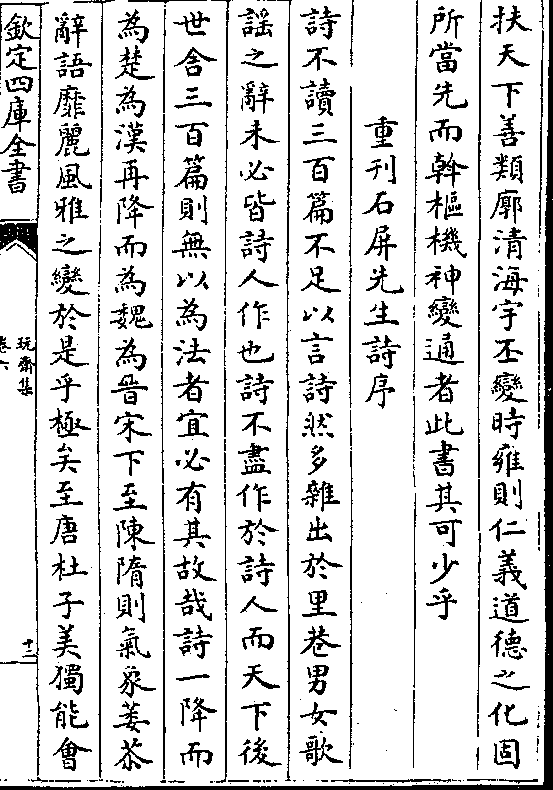 扶天下善類廓清海宇丕變時雍則仁義道德之化固
所當先而斡樞機神變通者此書其可少乎
重刊石屏先生詩序
詩不讀三百篇不足以言詩然多雜出於里巷男女歌
謡之辭未必皆詩人作也詩不盡作於詩人而天下後
世舎三百篇則無以為法者宜必有其故哉詩一降而
為楚為漢再降而為魏為晉宋下至陳隋則氣象萎苶
辭語靡麗風雅之變於是乎極矣至唐杜子美獨能會
欽定四庫全書
玩齋集
卷六
十二